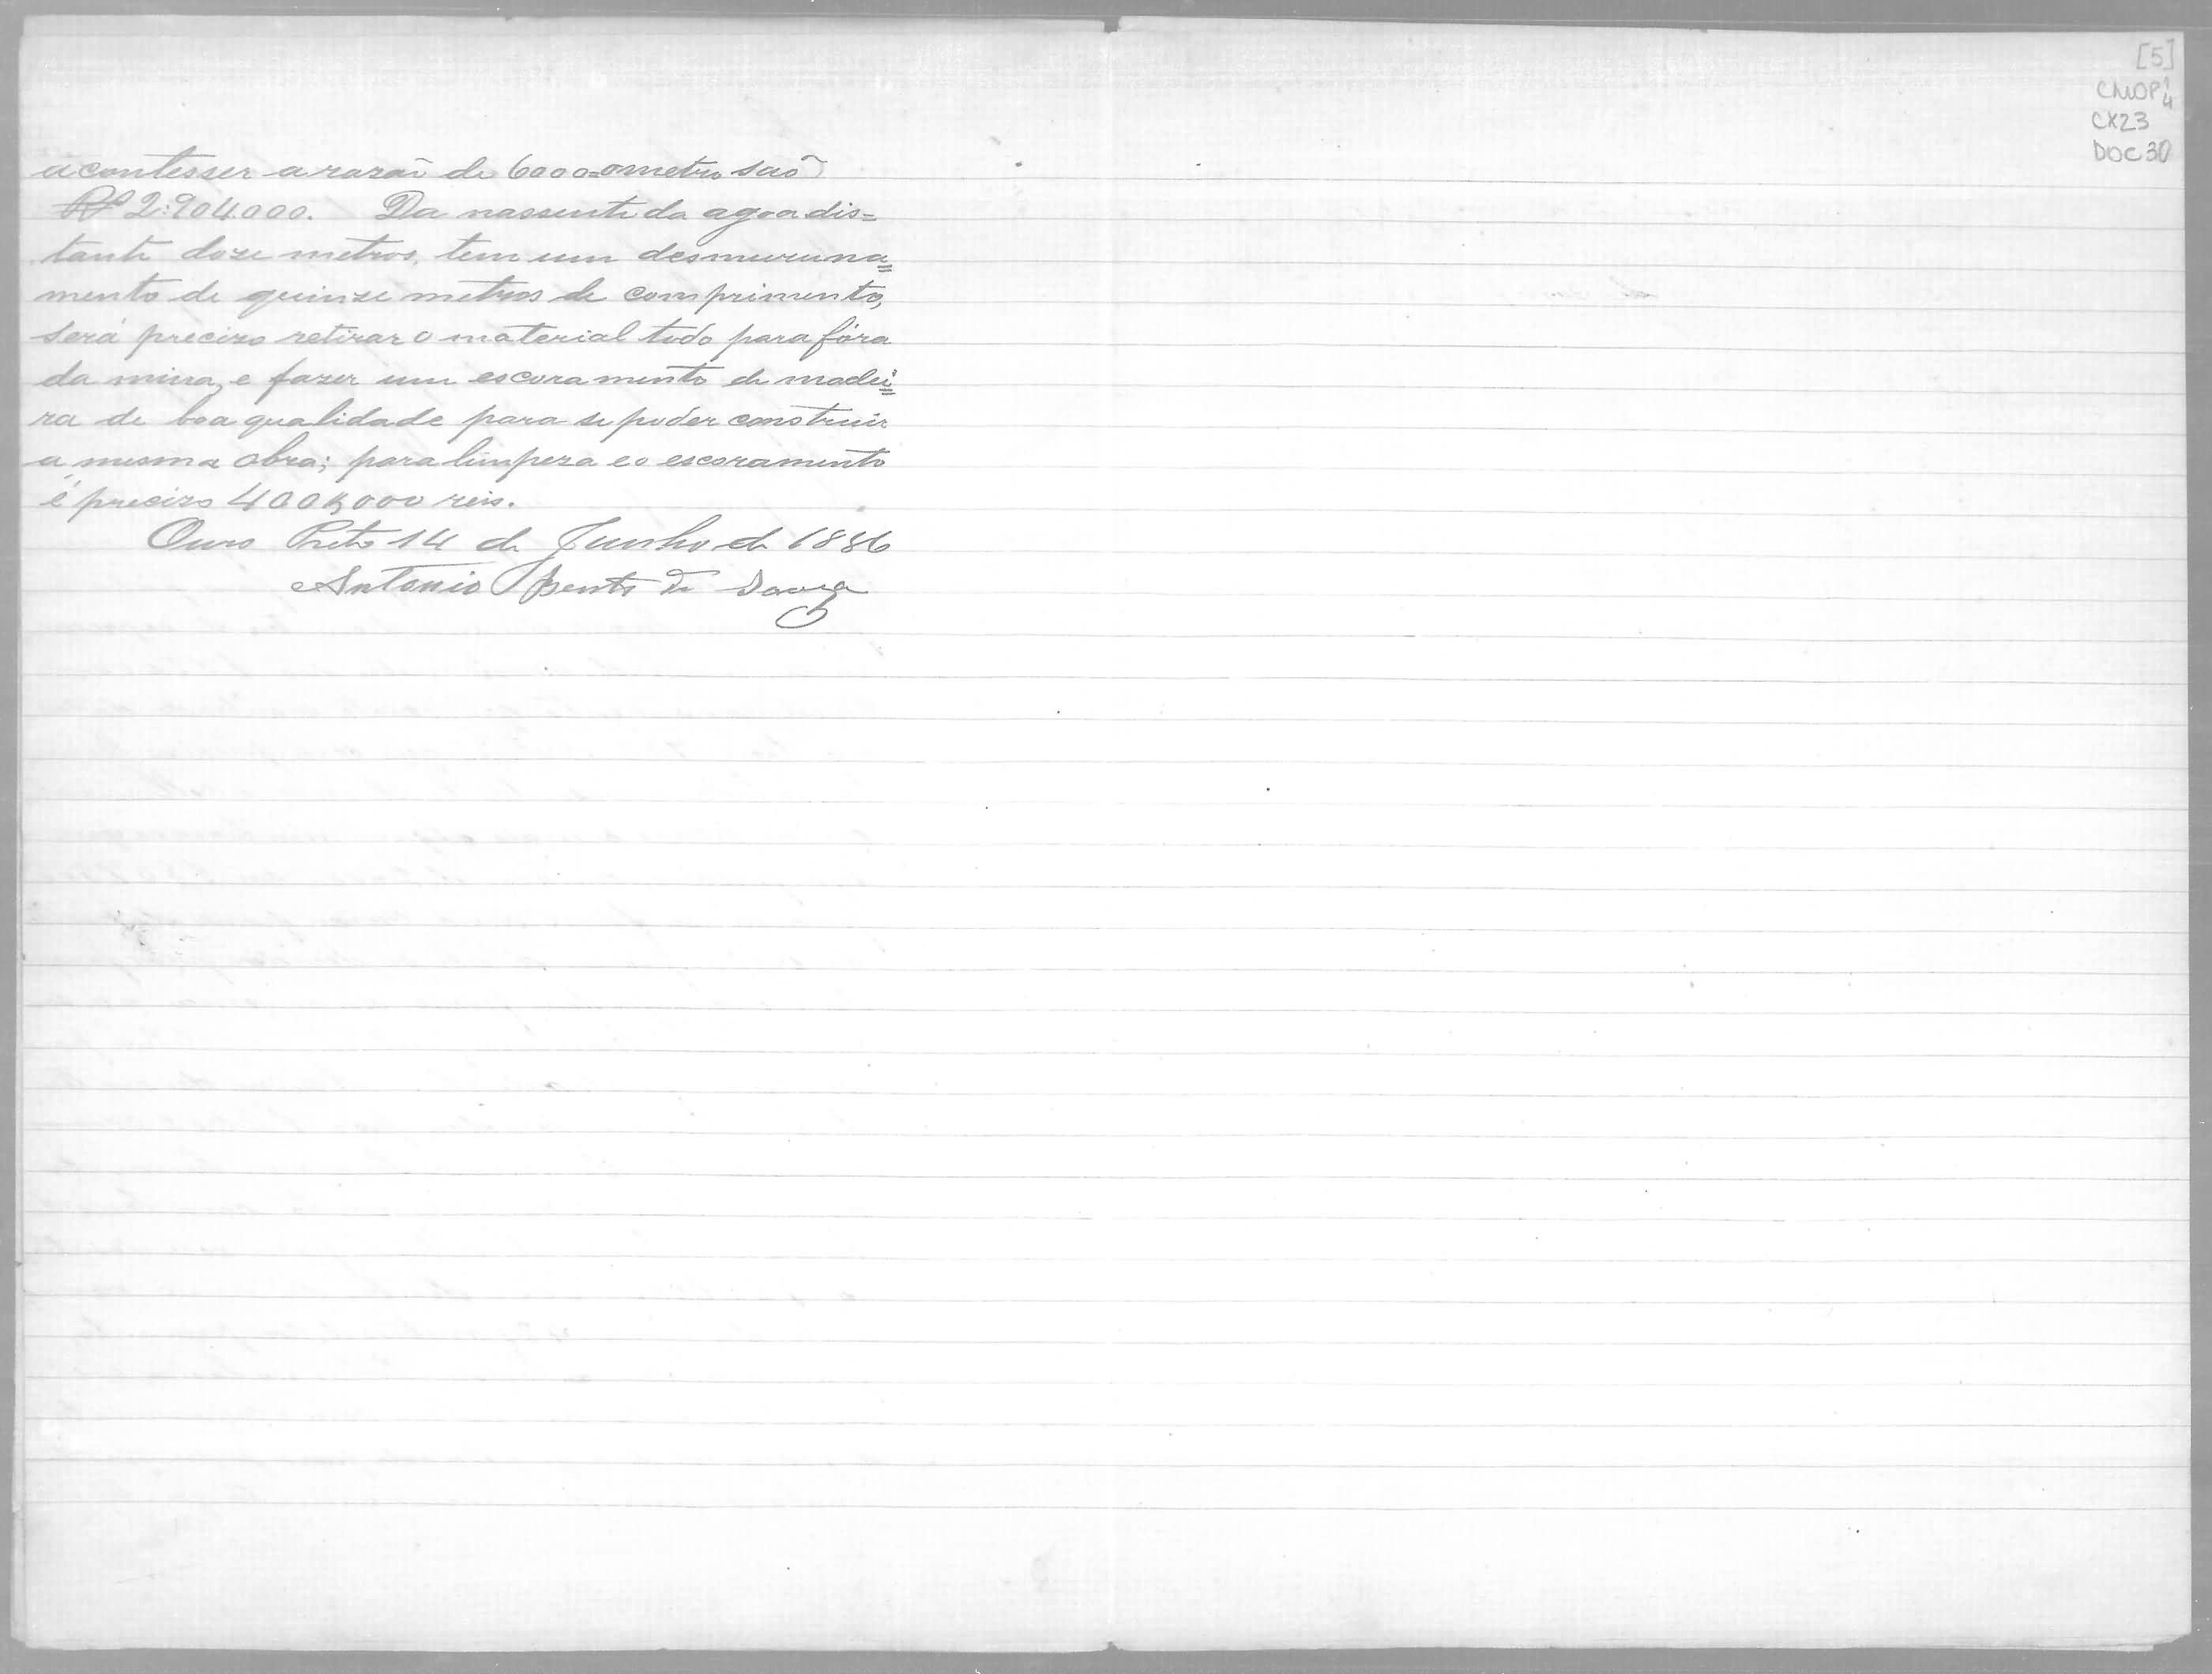 [5]
CMOP
CX23
DOC30
acontesser a razaõ de 6000 o metro saõ
Rs 2:904.000. Da nassente da agoa dis=
tante doze metros, tem um desmuruna=
mento de quinze metros de comprimento,
será precizo retirar o material todo para fóra
da mina, e fazer um escoramento de madei=
ra de boa qualidade para se poder construir
a mesma obra; para limpeza e o escoramento
é precizo 400$000 reis.
Ouro Preto 14 de Junho de 1886
Antonio Bento de Souza